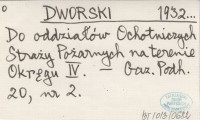 DWORSKI 1932...
Do oddziałów Ochotniczych
Straży Pożarnych na terenie
Okręgu IV. — Gaz. Podh.
20, nr 2.